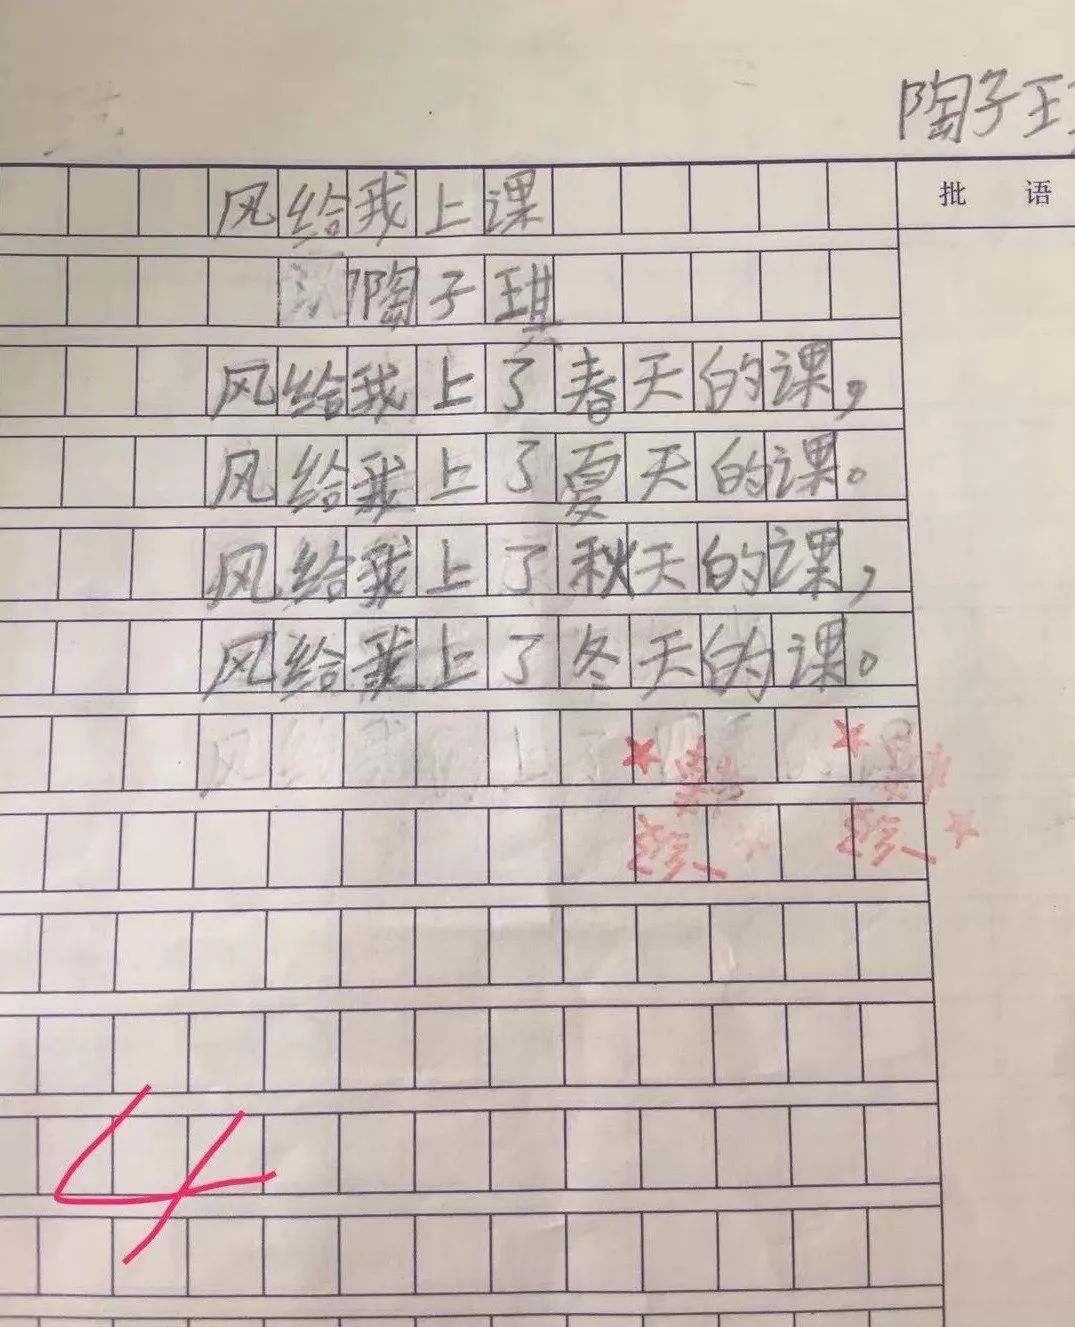 陶子
批 语
风给我上课
陶子琪
风给我上了春天的课，
风给我上了夏天的课。
风给我上了秋天的课，
风给我上了冬天的课。
4